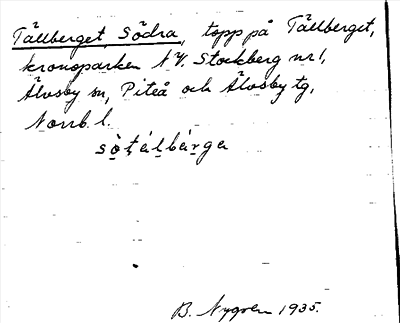 Tällberget, Södra, topp på Tällberget,
kronoparken N.V. Stockberg nr 1,
Älvsby sn, Piteå och Älvsby tg,
Norrb. l.
sò̤ṭáḷbárga
B. Nygren 1935.